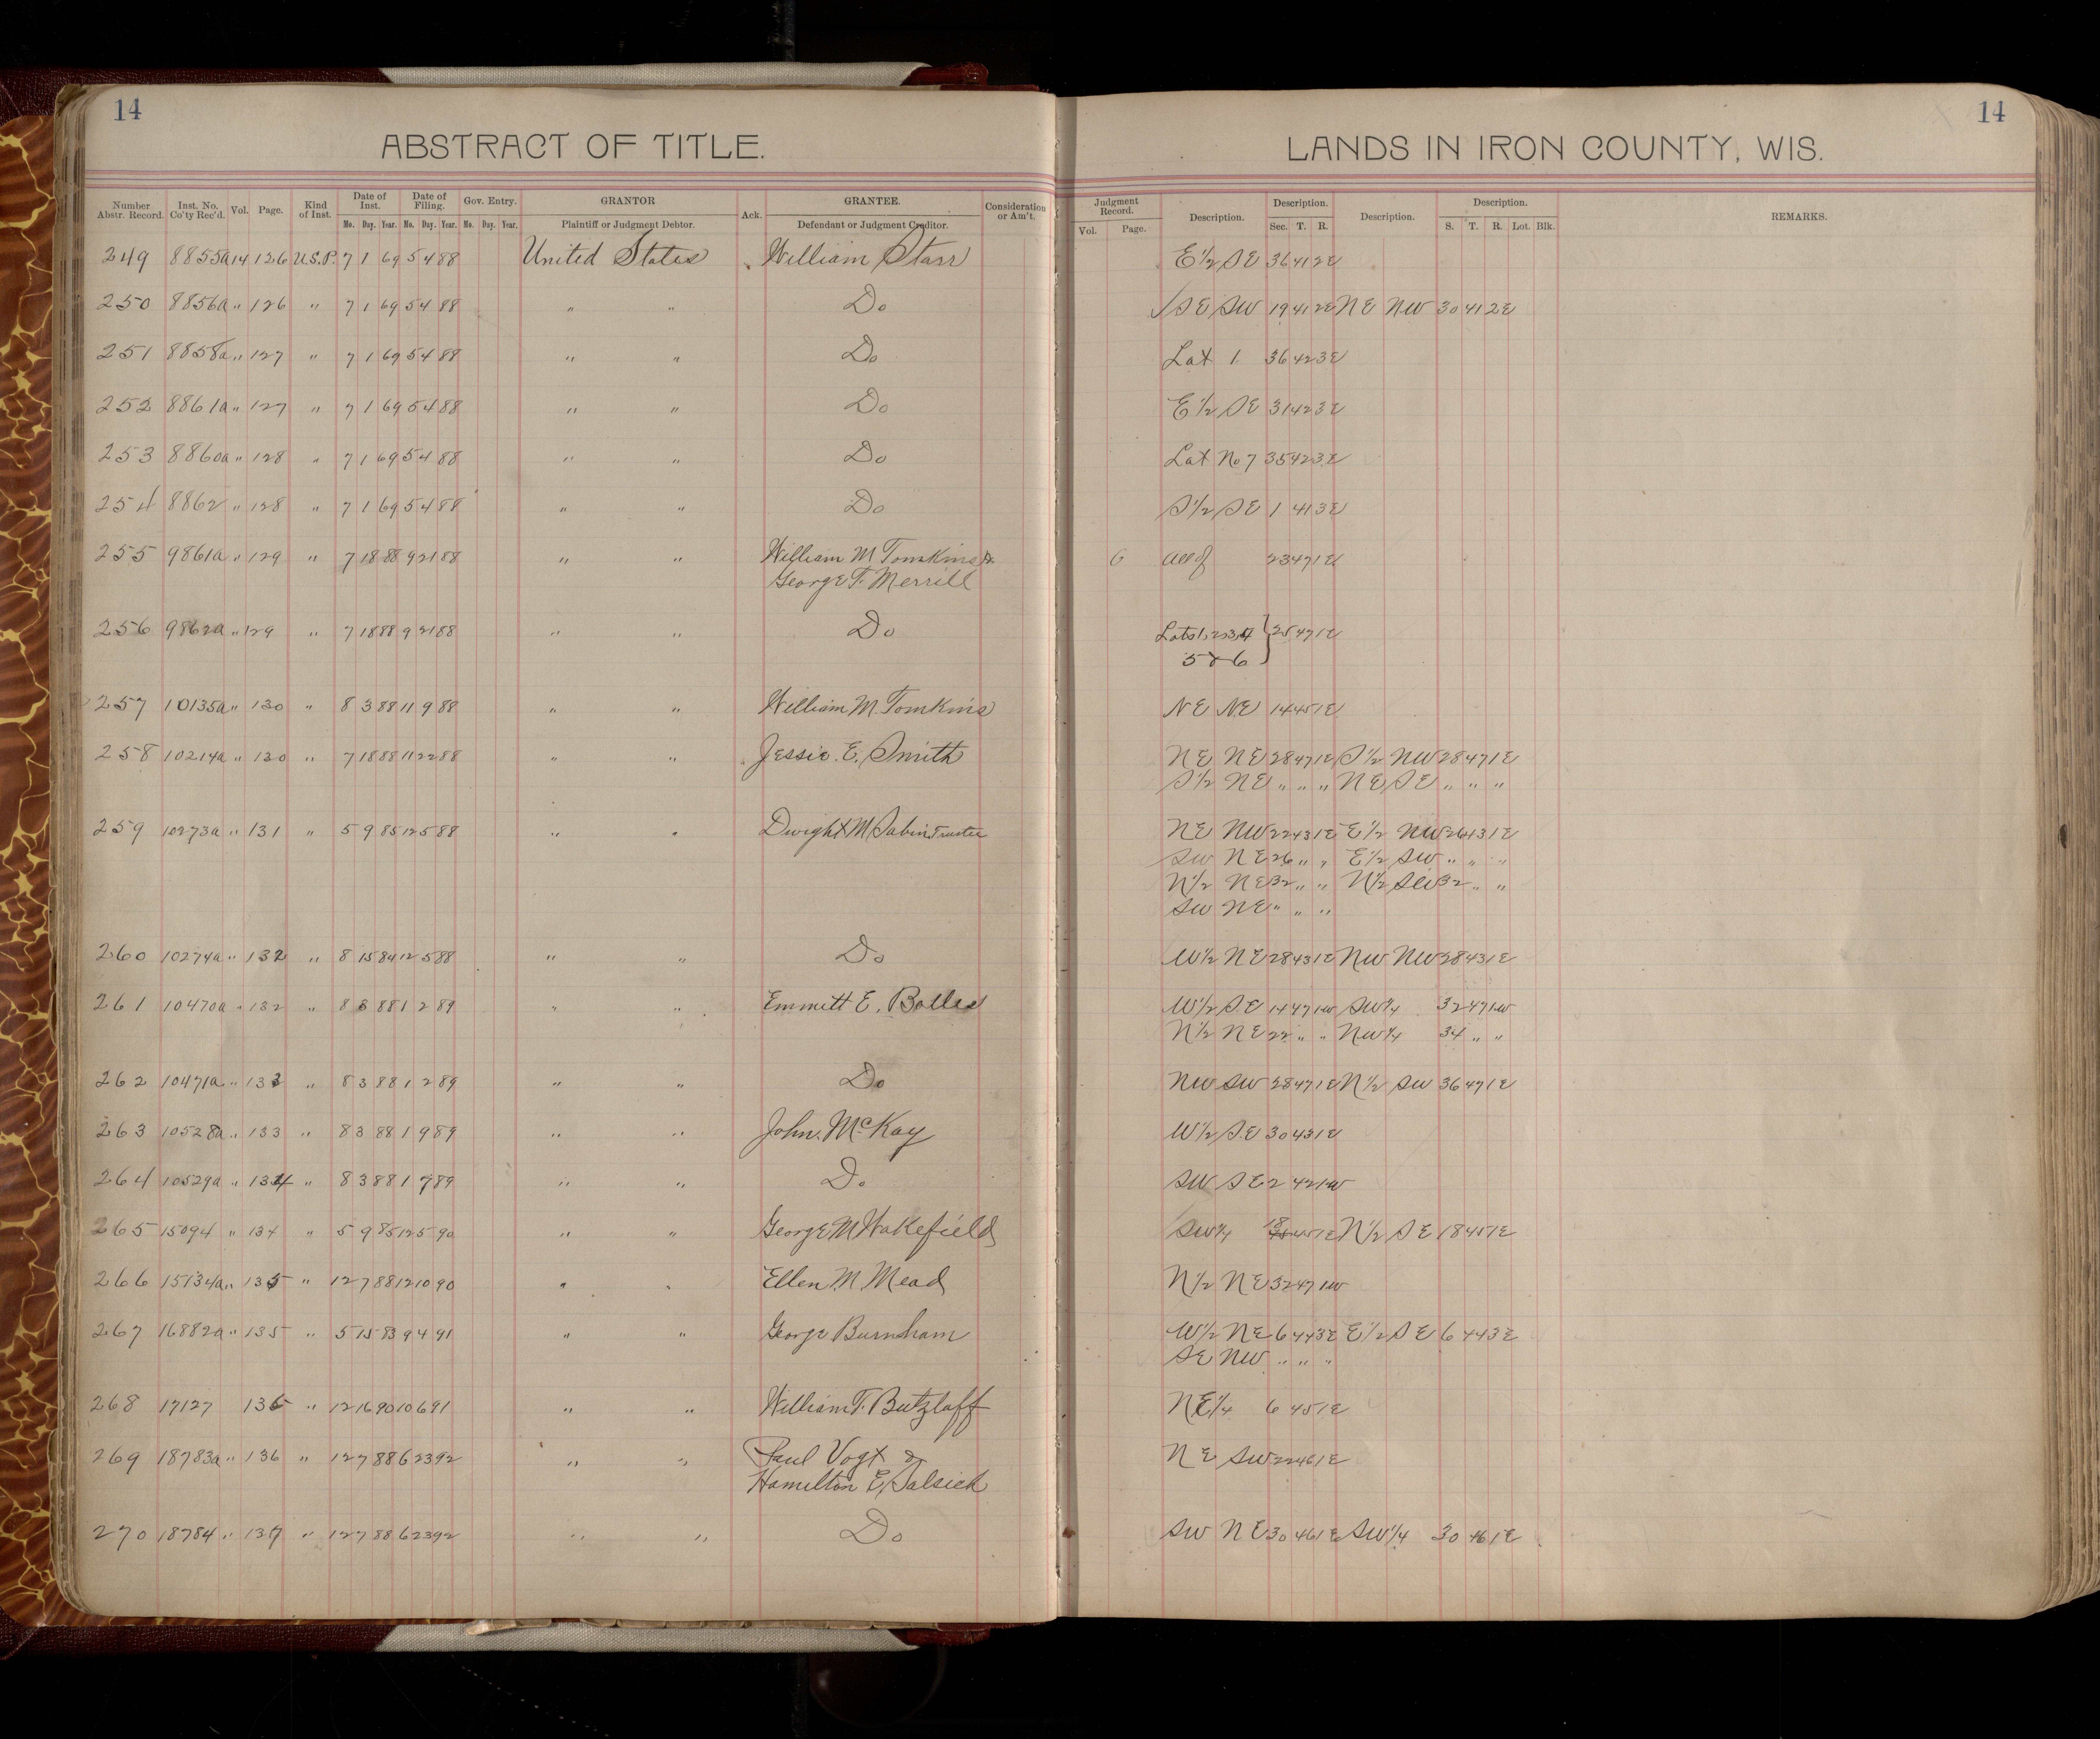 14
ABSTRACT OF TITLE.
Number Abstr. Record. Inst. No. Co'ty Rec'd. Vol. Page. Kind of Inst. Date of Inst. Mo. Day. Year. Date of Filing. Mo. Day. Year. Gov. Entry. Mo. Day. Year. GRANTOR Plaintiff or Judgment Debtor. Ack. GRANTEE. Defendant or Judgment Creditor. Consideration or Am't.
249 8855a 14 126 U.S.P. 7 1 69 5 4 88 United States William Starr
250 8856a " 126 " 7 1 69 5 4 88 " " Do
251 8858a " 127 " 7 1 69 5 4 88 " " Do
252 8861a " 127 " 7 1 69 5 4 88 " " Do
253 8860a " 128 " 7 1 69 5 4 88 " " Do
254 8862 " 128 " 7 1 69 5 4 88 " " Do
255 9861a " 129 " 7 18 88 9 21 88 " " William M Tomkins &
George T. Merrill
256 9862a " 129 " 7 18 88 9 21 88 " " Do
257 10135a " 130 " 8 3 88 11 9 88 " " William M. Tomkins
258 10214a " 130 " 7 18 88 11 22 88 " " Jessie. E. Smith
259 10273a " 131 " 5 9 85 12 5 88 " " Dwight M Sabin Trustee
260 10274a " 132 " 8 15 84 12 5 88 " " Do
261 10470a " 132 " 8 3 88 1 2 89 " " Emmett E. Bolles
262 10471a " 133 " 8 3 88 1 2 89 " " Do
263 10528a " 133 " 8 3 88 1 9 89 " " John. McKay
264 10529a " 134 " 8 3 88 1 9 89 " " Do
265 15094 " 134 " 5 9 85 12 5 90 " " George M Wakefield
266 15134a " 135 " 12 7 88 12 10 90 " " Ellen. M. Mead
267 16882a " 135 " 5 15 83 9 4 91 " " George Burnham
268 17127 136 " 12 16 90 10 6 91 " " William T. Butzlaff
269 18783a " 136 " 12 7 88 6 23 92 " " Paul Vogt &
Hamilton E. Salsich
270 18784 " 137 " 12 7 88 6 23 92 " " Do
14
LANDS IN IRON COUNTY, WIS.
Judgment Record. Vol. Page. Description. Description. Sec. T. R. Description. Description. S. T. R. Lot. Blk. REMARKS.
E 1/2 SE 36 41 2E
SE SW 19 41 2E NE NW 30 41 2E
Lot 1 36 42 3E
E 1/2 SE 31 42 3E
Lot No 7 35 42 3E
S 1/2 SE 1 41 3E
All of 23 47 1E
Lots 1, 2, 3, 4 } 25 47 1E
5 & 6
NE NE 14 45 1E
NE NE 28 47 1E S 1/2 NW 28 47 1E
S 1/2 NE " " " NE SE " " "
NE NW 22 43 1E E 1/2 NW 26 43 1E
SW NE 26 " " E 1/2 SW " " "
N 1/2 NE 32 " " N 1/2 SW 32 " "
SW NE " " "
W 1/2 NE 28 43 1E NW NW 28 43 1E
W 1/2 SE 14 47 1W SW 1/4 32 47 1W
N 1/2 NE 22 " " NW 1/4 34 " "
NW SW 28 47 1E N 1/2 SW 36 47 1E
W 1/2 SE 30 43 1E
SW SE 2 42 1W
SW 1/4 18 45 1E N 1/2 SE 18 45 1E
N 1/2 NE 32 47 1W
W 1/2 NE 6 44 3E E 1/2 SE 6 44 3E
SE NW " " "
NE 1/4 6 45 1E
NE SW 22 46 1E
SW NE 30 46 1E SW 1/4 30 46 1E